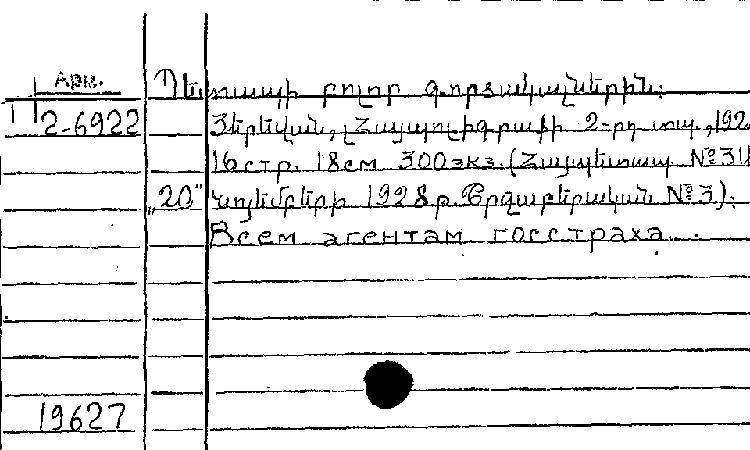 Арм.
Պետապի բոլոր գործակալներին:
2-6922
Յերեվան, Հայպոլիգրաֆի 2-րդ տպ., 192
16 стр. 18 см 300 экз. (Հայպետապ № 31
"20" նոյեմբերի 1928 թ. Շրջաբերական № 3).
Всем агентам госстраха.
19627